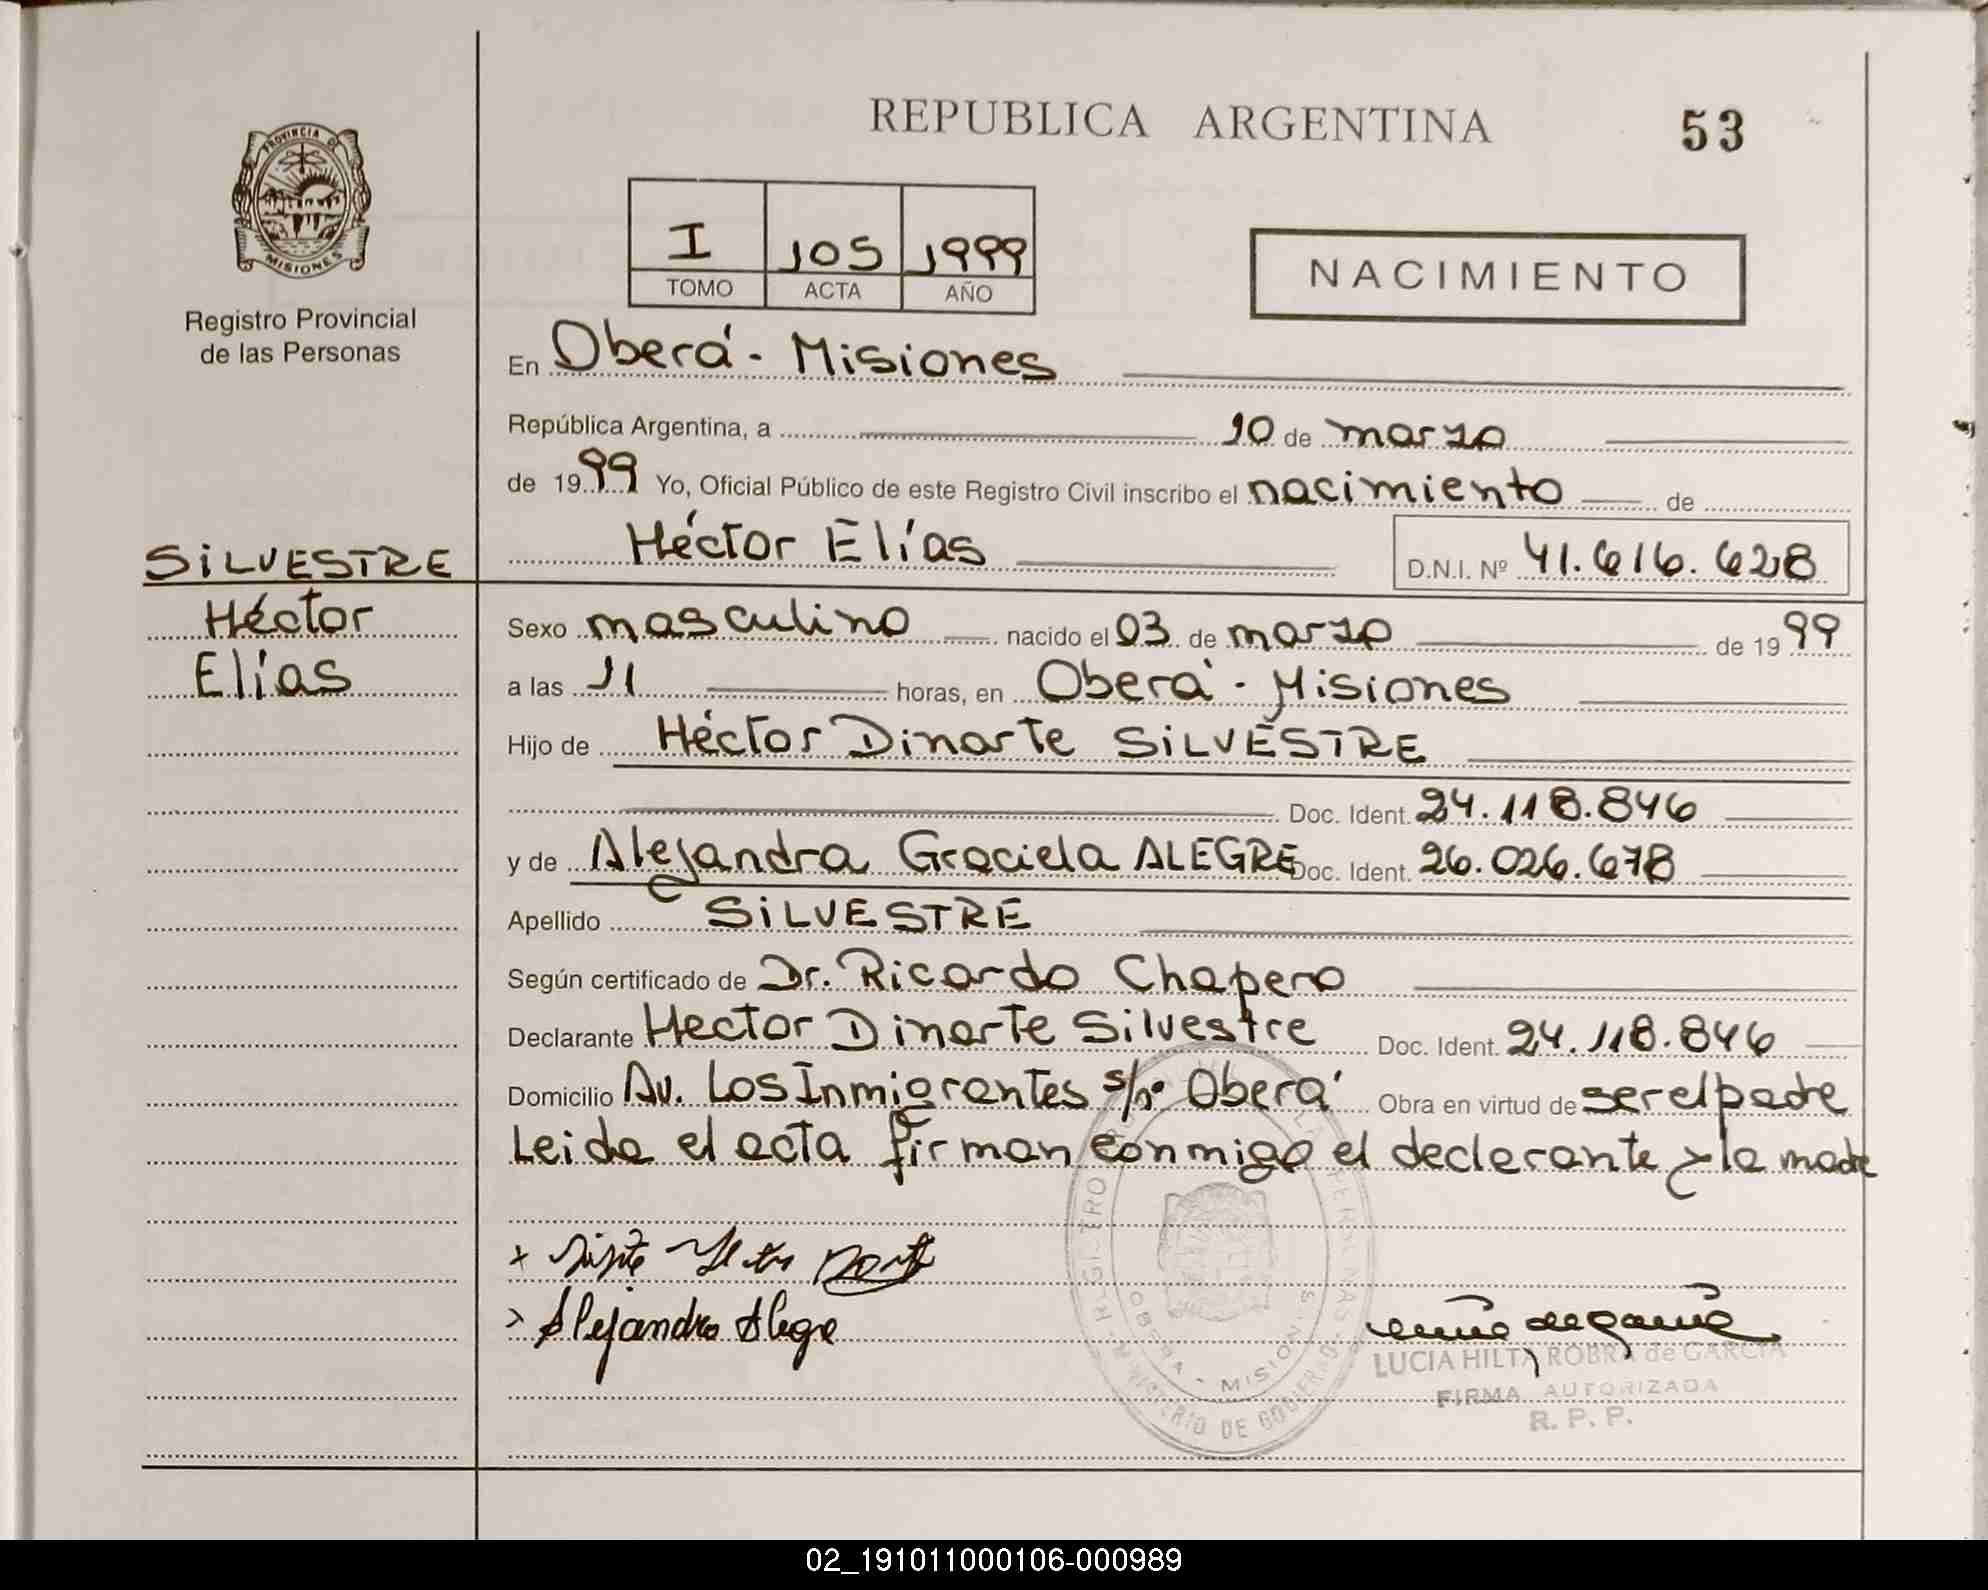 REPUBLICA ARGENTINA
53
PROVINCIA DE
MISIONES
Registro Provincial
de las Personas
I 105 1999
TOMO ACTA AÑO
NACIMIENTO
En Oberá - Misiones
República Argentina, a 10 de marzo
de 1999 Yo, Oficial Público de este Registro Civil inscribo el nacimiento de
Héctor Elías D.N.I. Nº 41.616.628
SILVESTRE
Héctor
Elías
Sexo masculino nacido el 03 de marzo de 1999
a las 11 horas, en Oberá - Misiones
Hijo de Héctor Dinarte SILVESTRE
Doc. Ident. 24.118.846
y de Alejandra Graciela ALEGRE Doc. Ident. 26.026.678
Apellido SILVESTRE
Según certificado de Dr. Ricardo Chapero
Declarante Hector Dinarte Silvestre Doc. Ident. 24.118.846
Domicilio Av. Los Inmigrantes s/nº Oberá Obra en virtud de ser el padre
Leida el acta firman conmigo el declarante y la madre
Alejandra Alegre
LUCIA HILTA ROBRA de GARCIA
FIRMA AUTORIZADA
R. P. P.
OBERA - MISIONES
MINISTERIO DE GOBIERNO
02_191011000106-000989